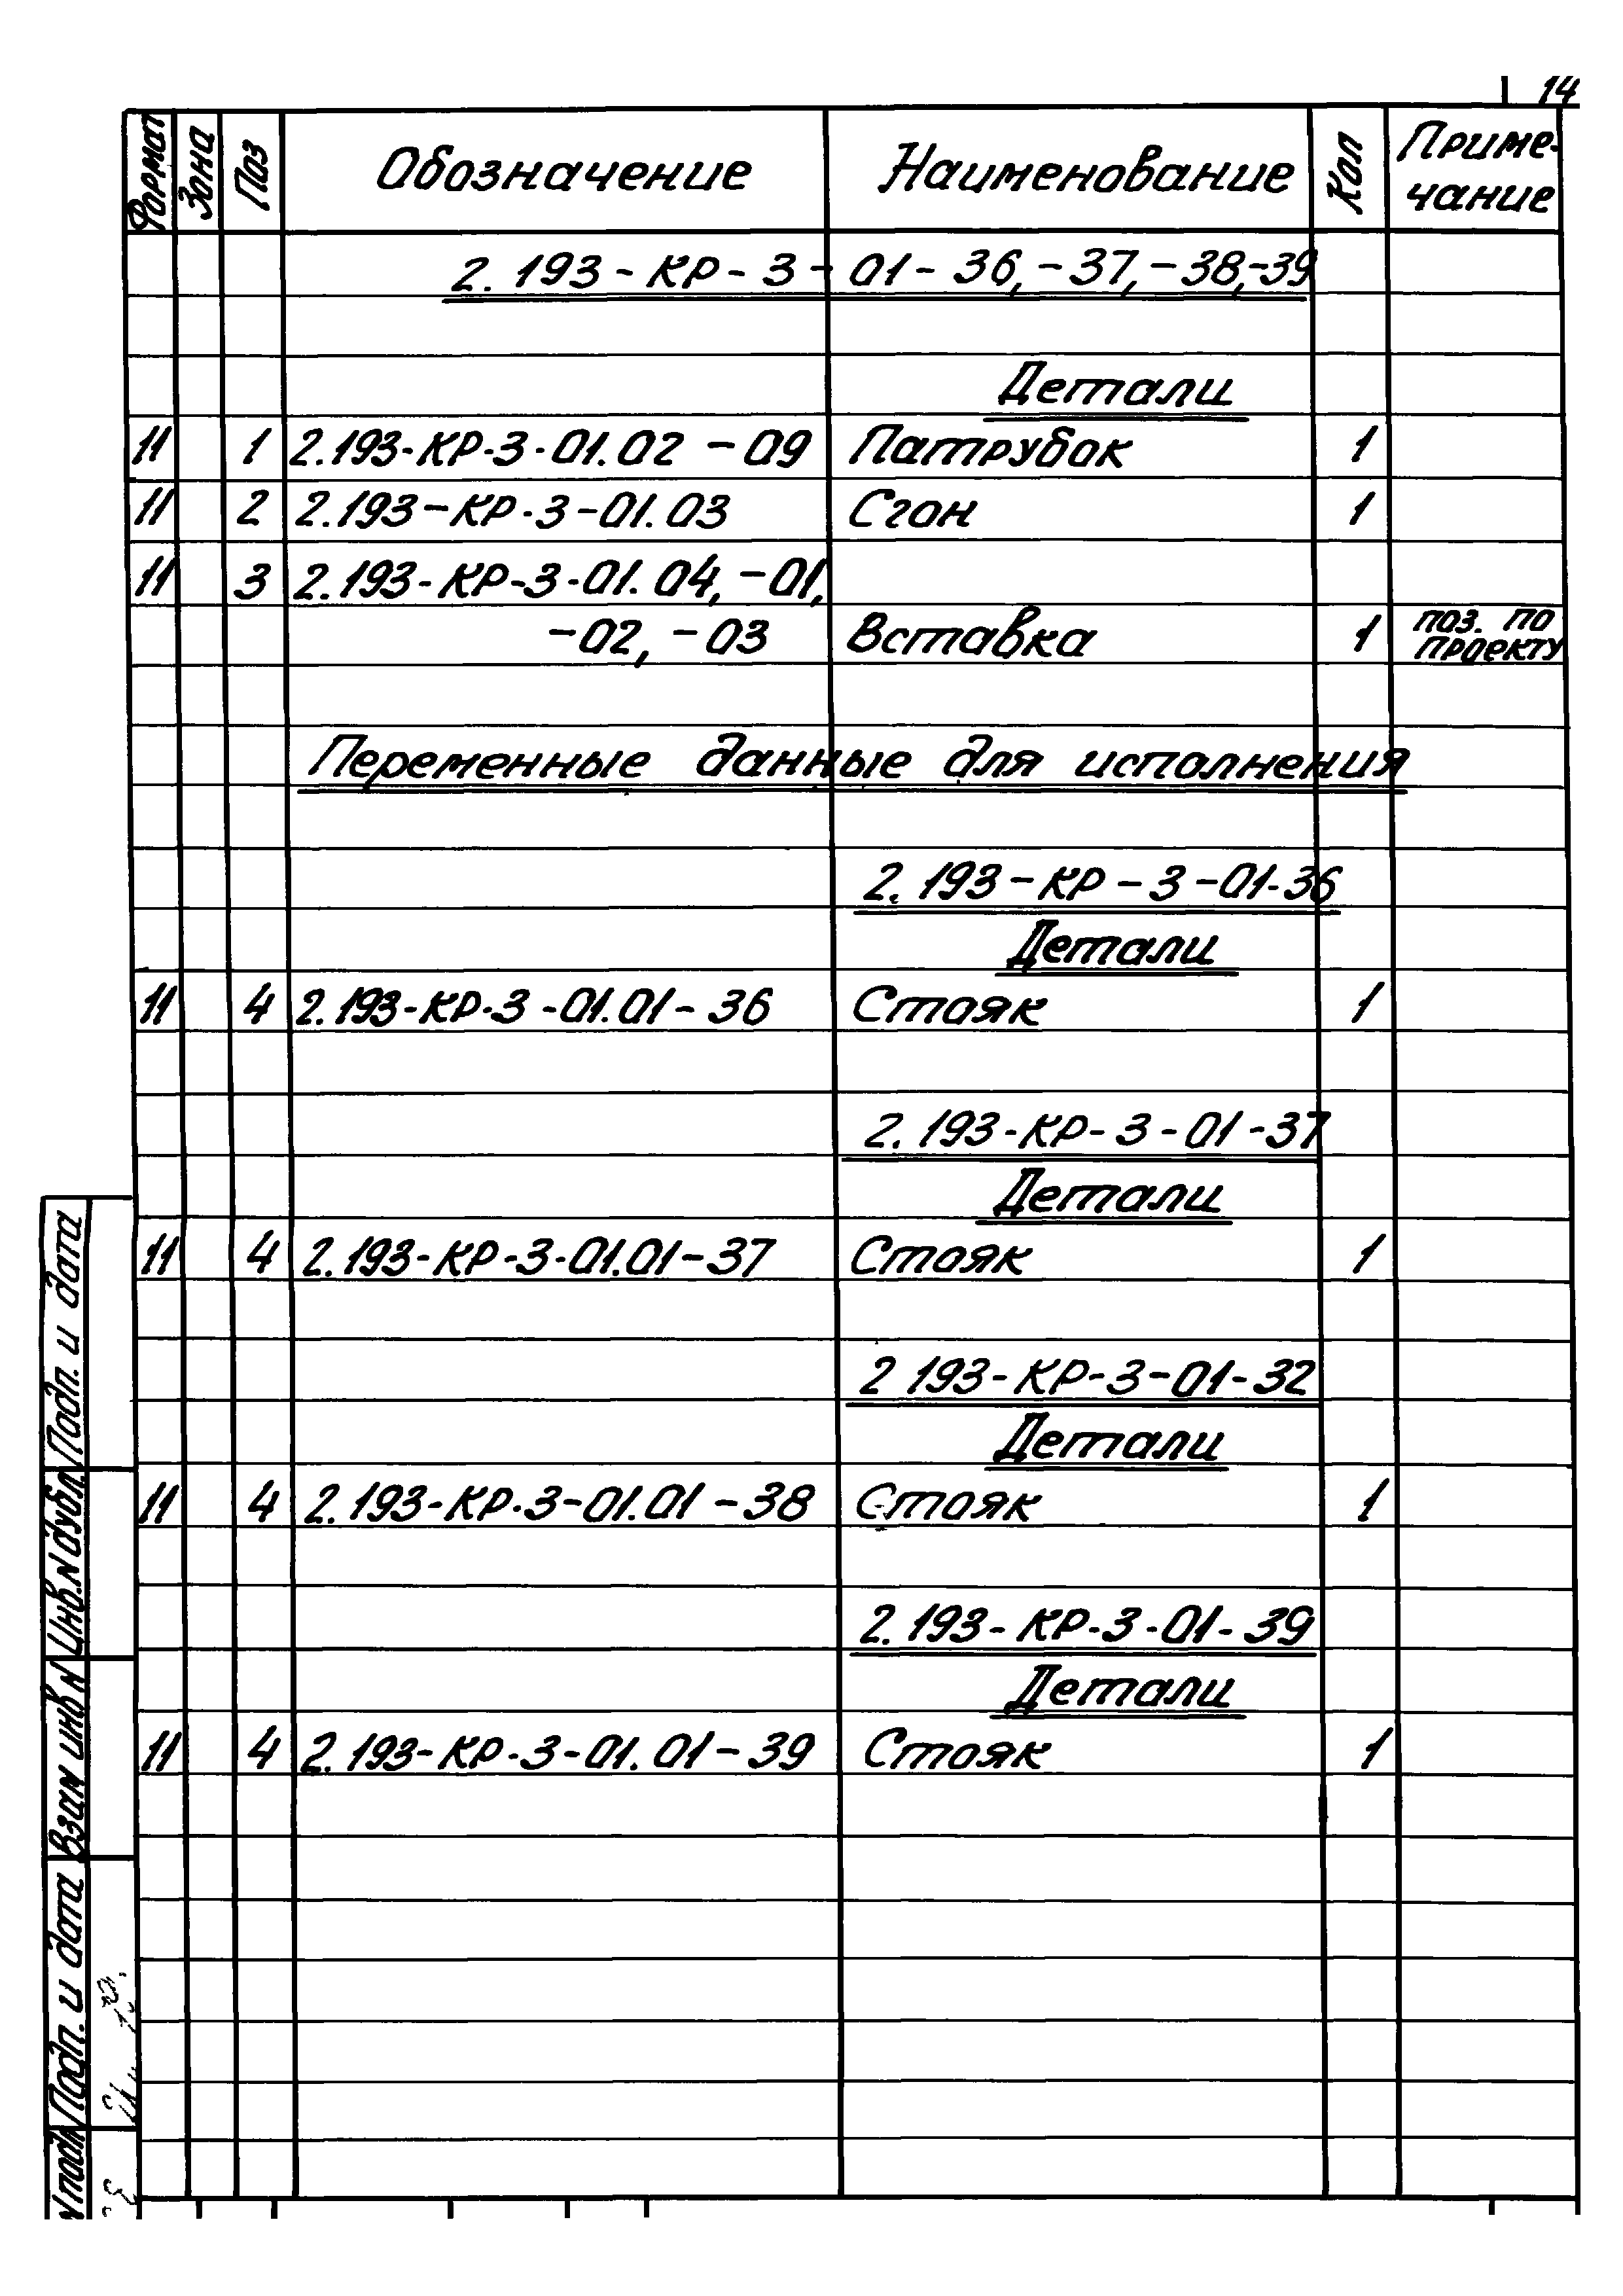 14
Формат Зона Поз Обозначение Наименование Кол Приме-
чание
2. 193 - КР - 3 - 01 - 36, - 37, - 38, -39
Детали
11 1 2.193-КР-3-01.02 - 09 Патрубок 1
11 2 2.193-КР-3-01.03 Сгон 1
11 3 2.193-КР-3-01.04, -01,
-02, -03 Вставка 1 поз. по
проекту
Переменные данные для исполнения
2. 193 - КР - 3 - 01-36
Детали
11 4 2.193-КР-3-01.01-36 Стояк 1
2. 193-КР-3-01-37
Детали
11 4 2.193-КР-3-01.01-37 Стояк 1
2 193-КР-3-01-32
Детали
11 4 2.193-КР-3-01.01-38 Стояк 1
2. 193-КР-3-01-39
Детали
11 4 2.193-КР-3-01.01-39 Стояк 1
Подп. и дата
Инв.N дубл.
Взам инв N
Подп. и дата
N подл